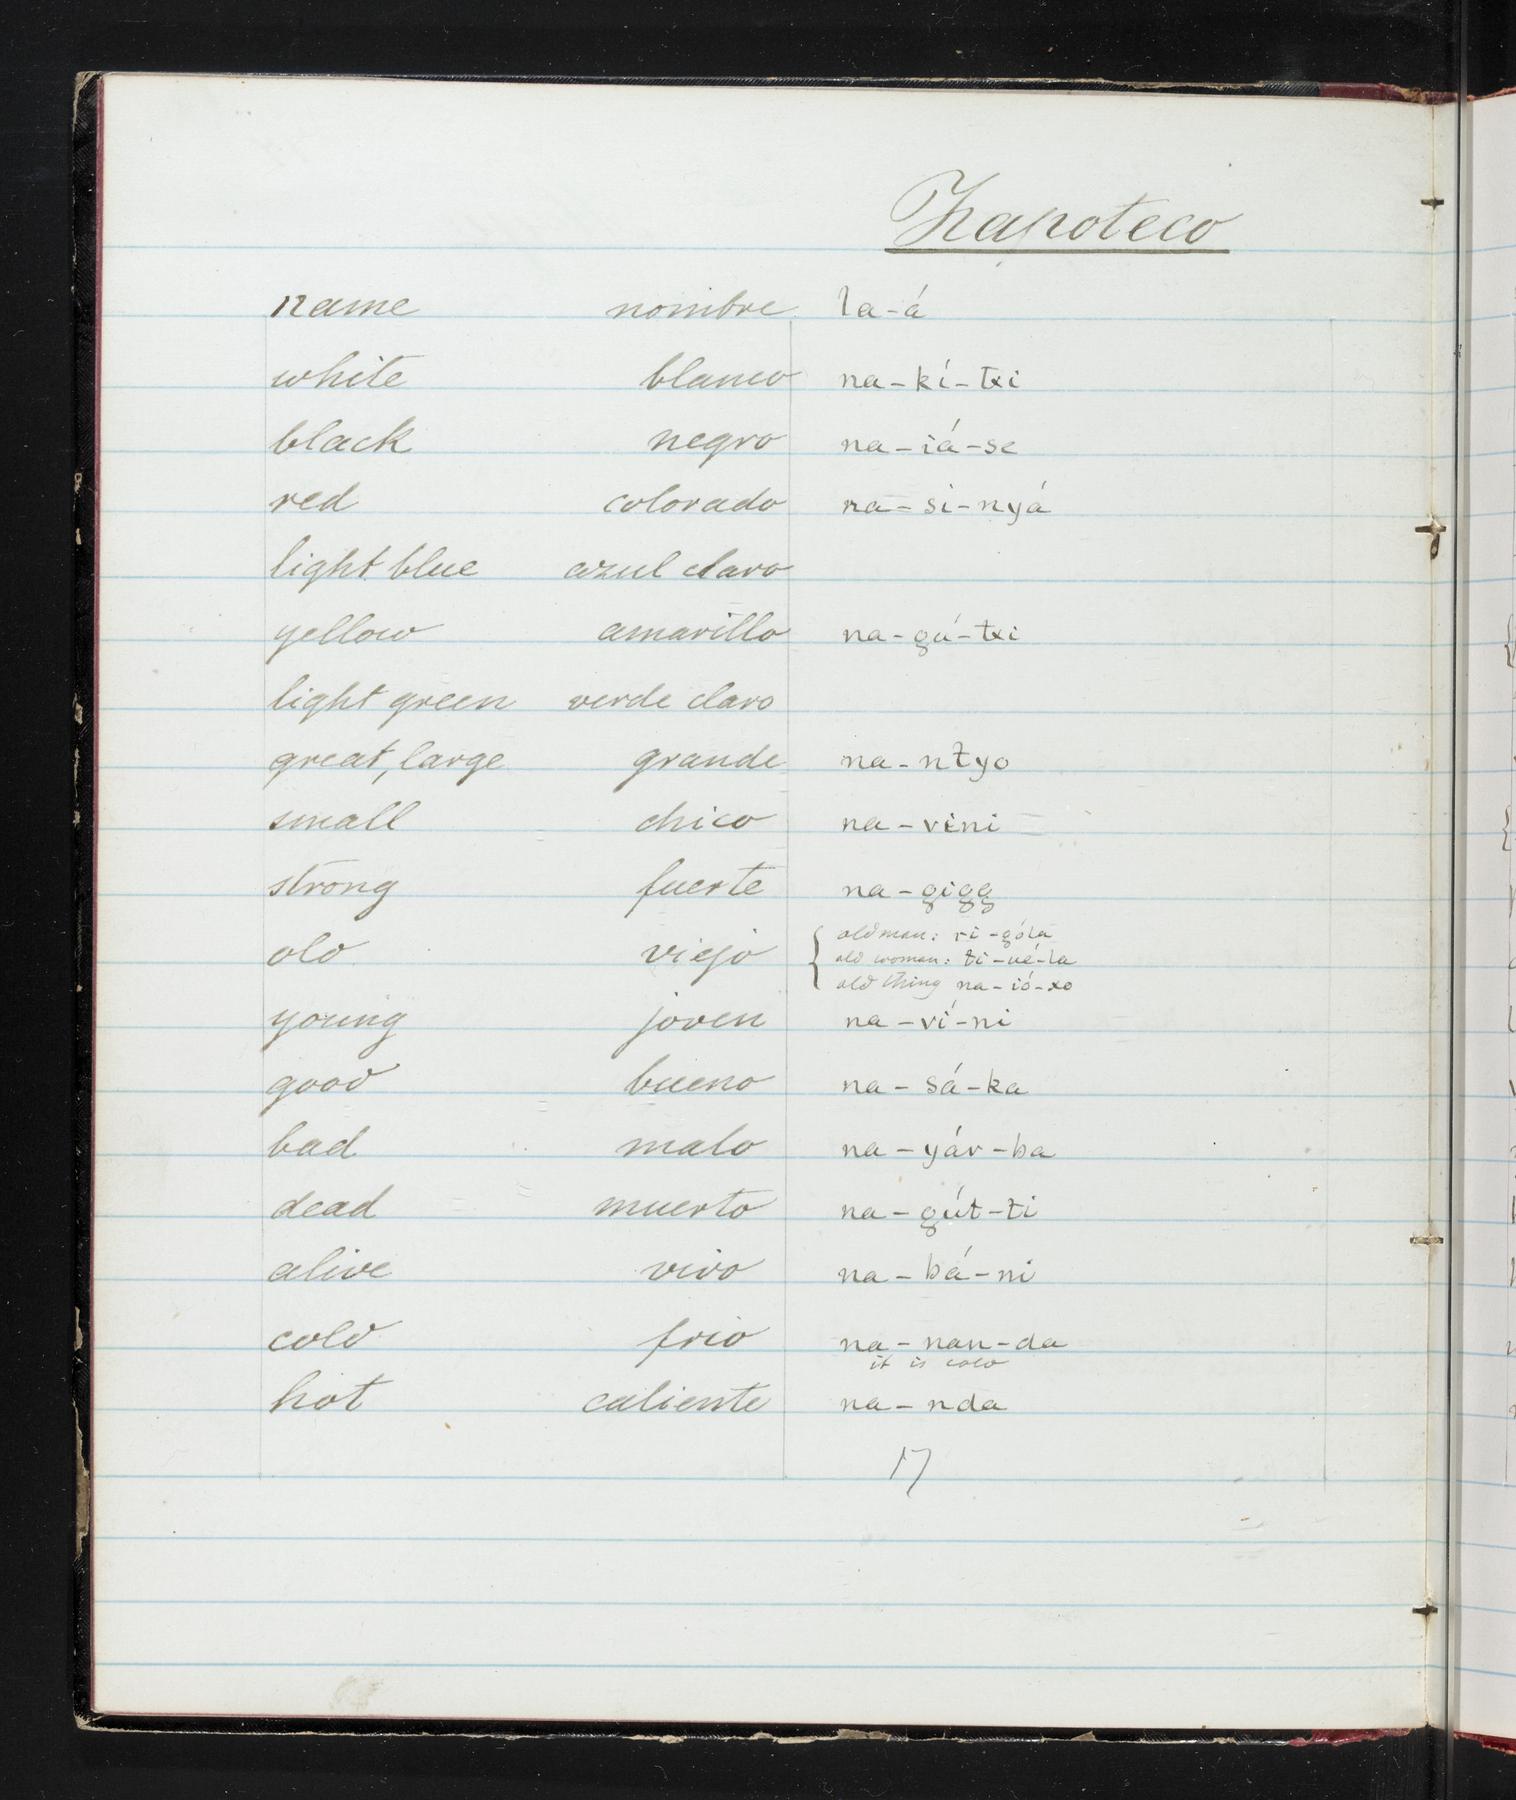 Zapoteco
name nombre la-á
white blanco na-kí-txi
black negro na-iá-se
red colorado na-si-nyá
light blue azul claro
yellow amarillo na-gú-txi
light green verde claro
great, large grande na-ntyo
small chico na-vini
strong fuerte na-gigg
old viejo { old man: ri-góla
old woman: ti-ué-la
old thing na-ió-xo
young joven na-ví-ni
good bueno na-sá-ka
bad malo na-yáv-ba
dead muerto na-gút-ti
alive vivo na-bá-ni
cold frio na-nan-da
it is cold
hot caliente na-nda
17